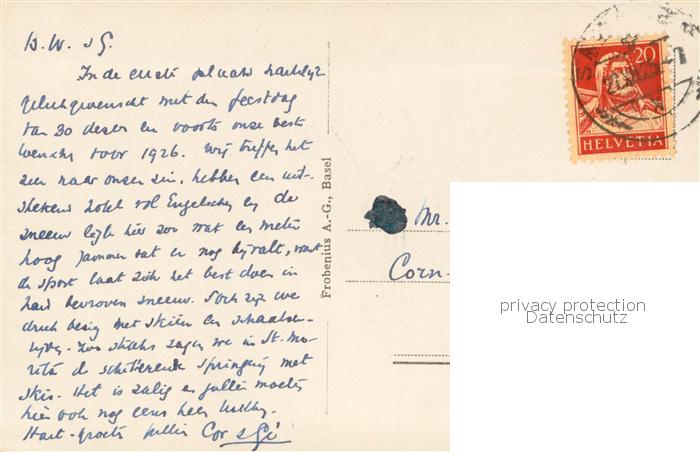 B. W. sG.
In de eerste plaats hartelijk
geluk gewenscht met den feestdag
van 30 dezer en voorts onze beste
wenschen voor 1926. Wij treffen het
zeer naar onzen zin, hebben een uit-
stekend hotel vol Engelschen en de
sneeuw ligt hier zoo wat een meter
hoog. Jammer dat er nog bijvalt, want
de sport laat zich het best doen in
hard bevroren sneeuw. Toch zijn we
druk bezig met skiën en schaatsen-
rijden. zagen we in St. Mo-
ritz de schitterende springerij met
skis. Het is zalig en jullie moeten
hier ook nog eens heen.
Hart. groeten jullie Cor
Frobenius A.-G., Basel
20
HELVETIA
Mr.
Corn-
privacy protection
Datenschutz